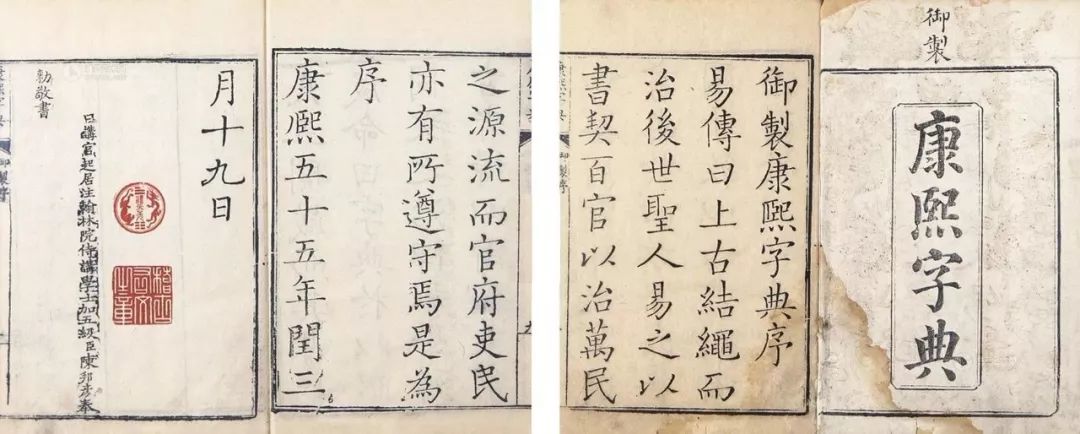 御製
康熙字典
御製康熙字典序
易傳曰上古結繩而
治後世聖人易之以
書契百官以治萬民
康熙字典 御製序
之源流而官府吏民
亦有所遵守焉是為
序
康熙五十五年閏三
月十九日
日講官起居注翰林院侍讀學士加五級臣陳邦彥奉
勅敬書
康熙字典 御製序